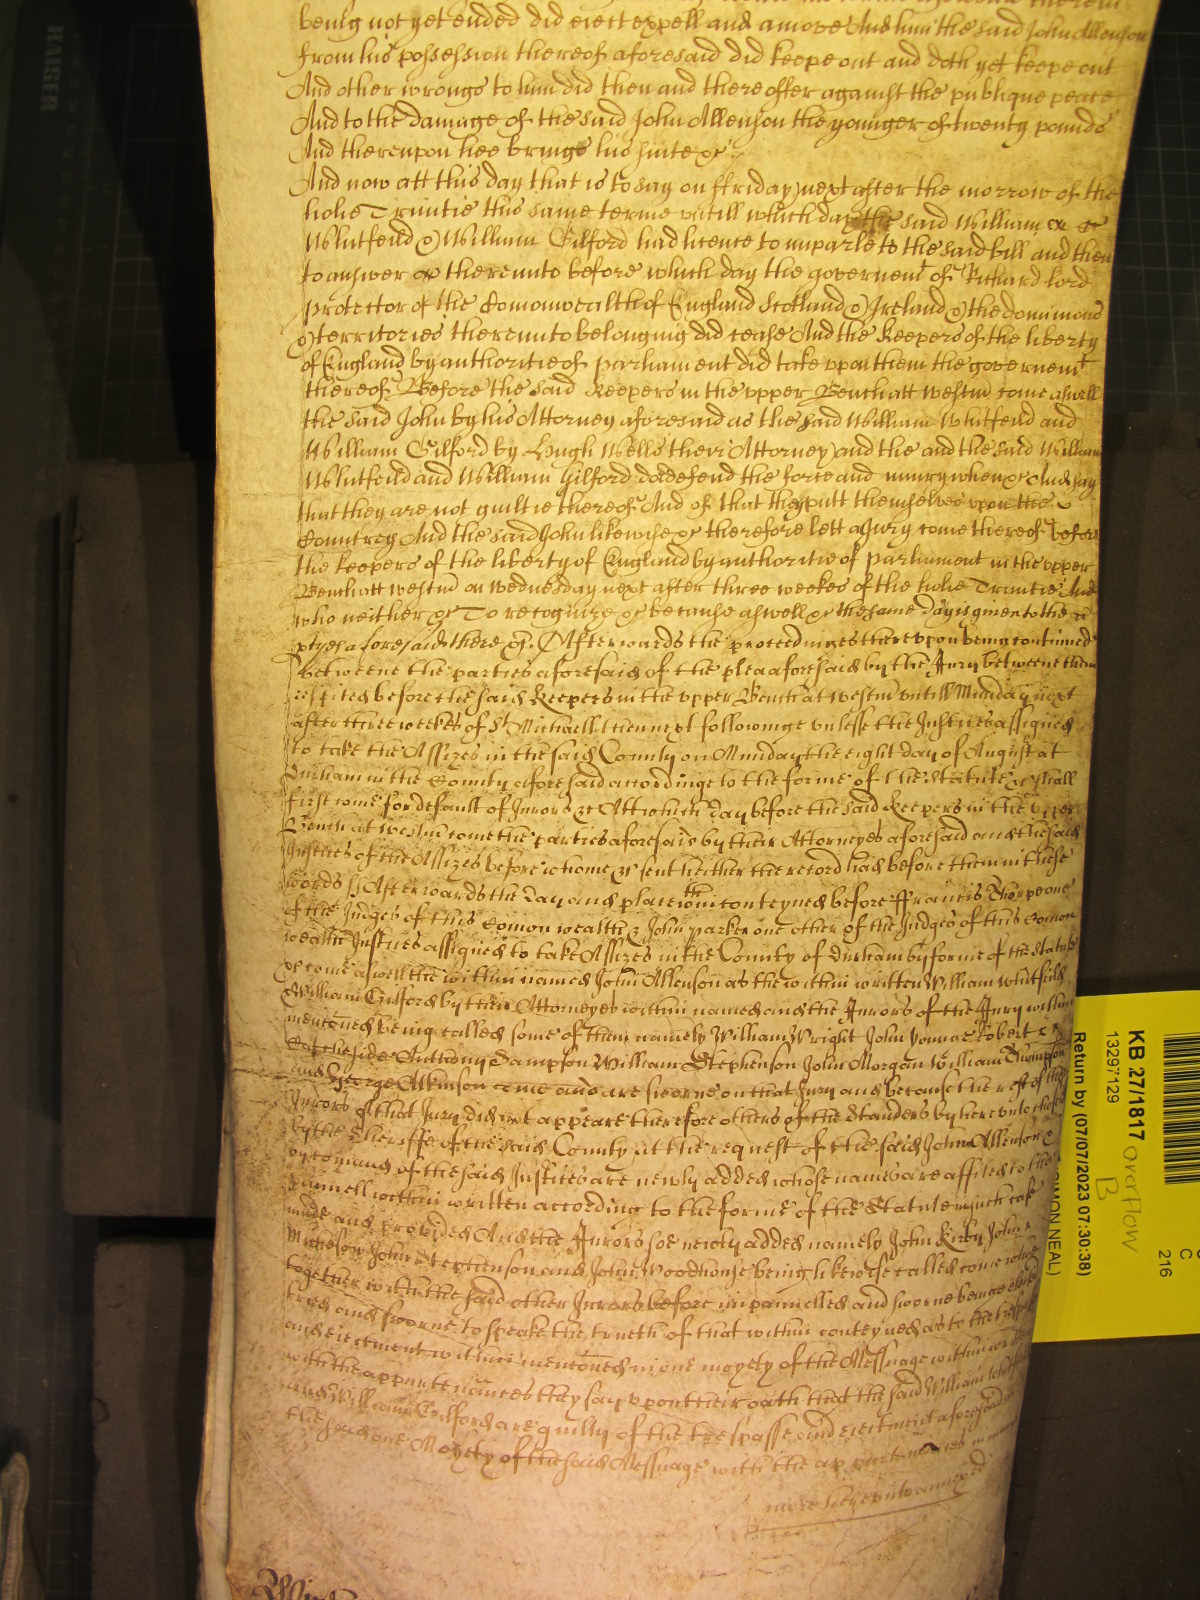 being not yet ended did eiect expell and amove And him the said John Allenson
from his possession thereof aforesaid did keepe out and doth yet keepe out
And other wrongs to him did then and there offer against the publique peace
And to the damage of the said John Allenson the younger of twenty pounds
And thereupon hee brings his suite &c
And now att this day that is to say on ffriday next after the morrow of the
holie Trinitie this same terme untill which day the said William
Whitfeild & William Gilford had licence to imparle to the said bill and then
to answer &c thereunto before which day the governemt of Richard lord
Protector of the Comonwealth of England Scotland & Ireland & the dominions
& territories thereunto belonging did cease And the Keepers of the liberty
of England by authoritie of parliament did take upon them the governemt
thereof Before the said Keepers in the upper Bench att Westm come aswell
the said John by his Attorney aforesaid as the said William Whitfeild and
William Gilford by Hugh Wells their Attorney and the and the said William
Whitfeild and William Gilford do defend the force and iniury when &c And say
that they are not guiltie thereof And of that they putt themselves upon the
Countrey And the said John likewise &c therefore lett a Jury come thereof before
the keepers of the liberty of England by authoritie of parliament in the upper
Bench att Westm on Wednesday next after three weekes of the holie Trinitie And
who neither &c To recognize &c because aswell &c the same day is given to the
ptyes aforesaid there &c. Afterwards the proceedinges thereupon being continued
betweene the parties aforesaid of the plea aforesaid by the Jury betweene them
respited before the said Keepers in the upper Bench at Westm untill Munday next
after three weekes of St Michaell then next followinge unlesse the Justices assigned
to take the Assizes in the said County on Munday the eight day of August at
Durham in the County aforesaid accordinge to the forme of the Statute &c shall
first come for default of Jurors &c Att which day before the said Keepers in the upper
Bench at Westm come the parties aforesaid by their Attorneyes aforesaid and the said
Justices of the Assizes before whome &c sent hether the record had before them in these
words ss Afterwards the day and place within conteyned before Francis Thorpe one
of the Judges of this Comon wealth & John Parker one other of the Judges of this Comon
wealth Justices assigned to take Assizes in the County of Durham by forme of the Statute
&c come aswell the within named John Allenson as the within written William Whitfeild
William Gilford by their Attorneyes within named and the Jurors of the Jury within
mentoned being called some of them namely William Wright John Robert
Anthony Sampson William Stephenson John Morgan William Thompson
and George Atkinson come and are sworne on that Jury and because the rest of the
Jurors of that Jury did not appeare therefore others of the Standers by hereunto chosen
by the Sheriffe of the said County at the request of the said John Allenson &
by comand of the said Justices are newly added whose names are affiled to the
pannell within written according to the forme of the Statute in such case
made and provided And the Jurors soe newly added namely John Kirby John
John Stephenson and John Woodhouse being likewise called come who
together with the said other Jurors before impannelled and sworne being elected
tried and sworne to speake the trueth of that within conteyned as to the trespasse
and eiectment within mentoned in one moyety of the Messuage within written
with the appurtenances they say upon their oath that the said William Whitfeild
and William Gilford are guilty of the trespasse and eiectment aforesaid in
the said one Moyety of the said Messuage with the appurtenances in
more hereunto annexed
KB 27/1817 overflow
B
13297129
Return by (07/07/2023 07:30:38)
SIMON NEAL)
C
216
HAISER